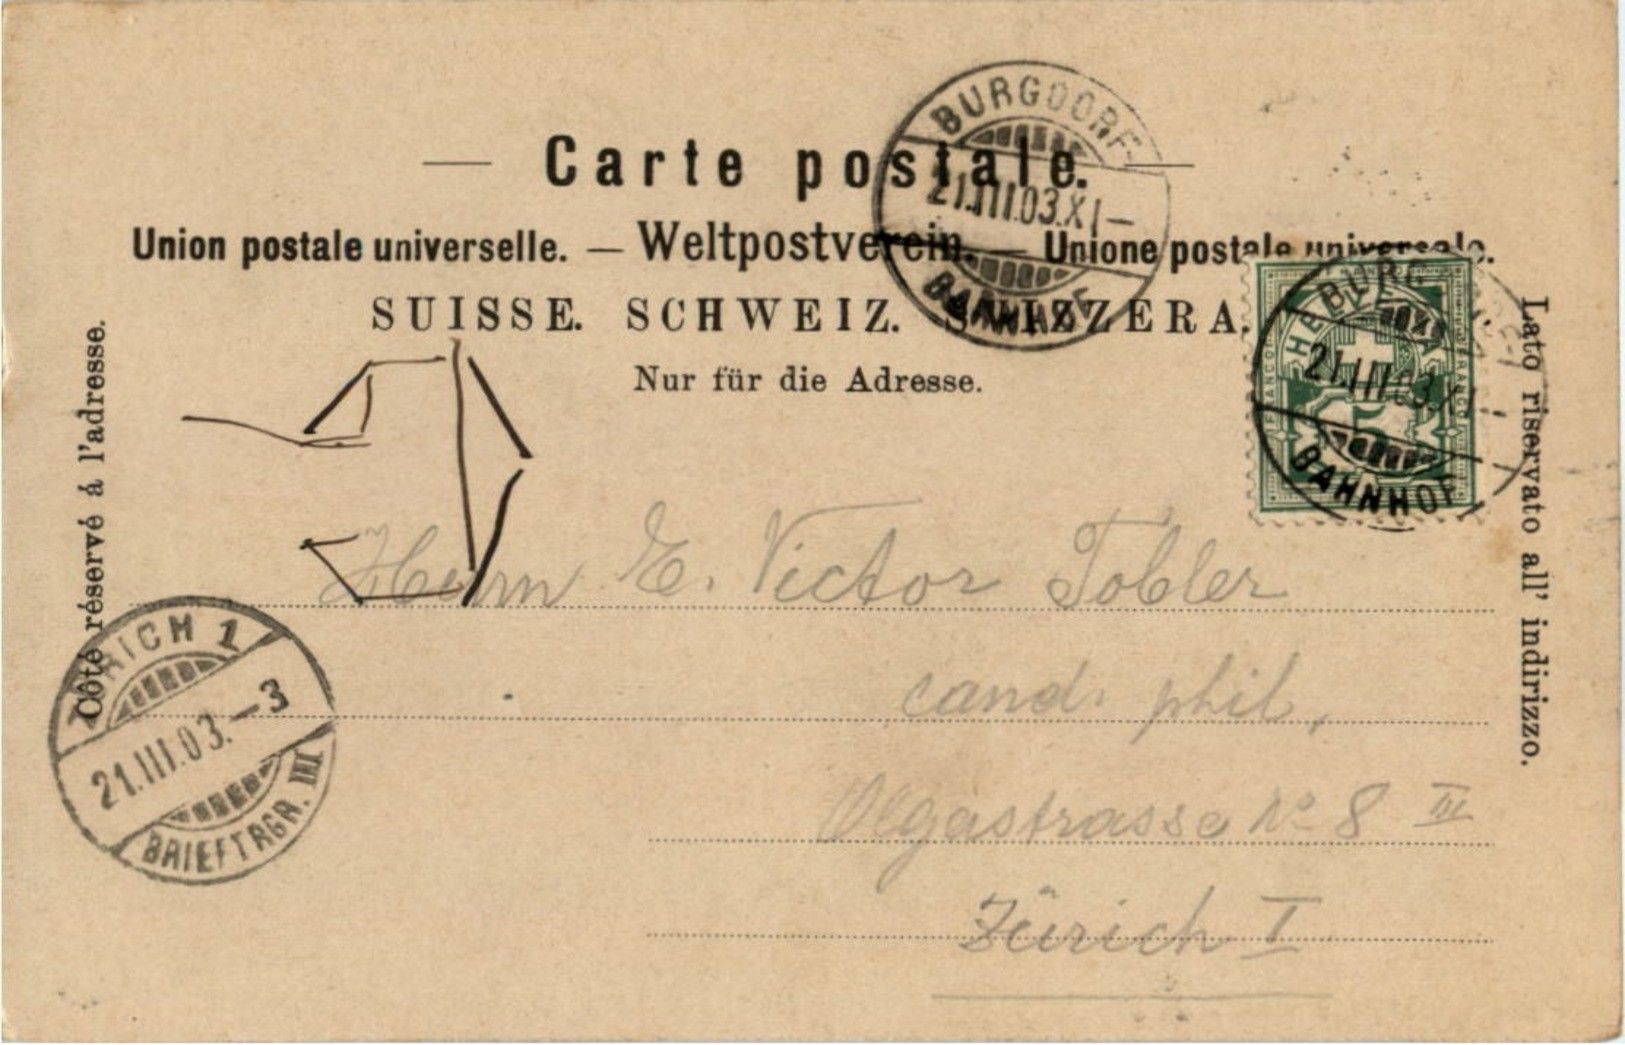 Carte postale.
Union postale universelle. — Weltpostverein. — Unione postale universale.
SUISSE. SCHWEIZ. SVIZZERA.
Nur für die Adresse.
Côté réservé á l'adresse.
Lato riservato all' indirizzo.
BURGDORF
21.III.03.XI-
BAHNHOF
HELVETIA
FRANCO
FRANCO
5
BURGDORF
21.III.03.XI-
BAHNHOF
Herrn E. Victor Tobler
cand. phil.
Olgastrasse No 8 III
Zürich I
ZÜRICH 1
21.III.03.-3
BRIEFTRGR. III